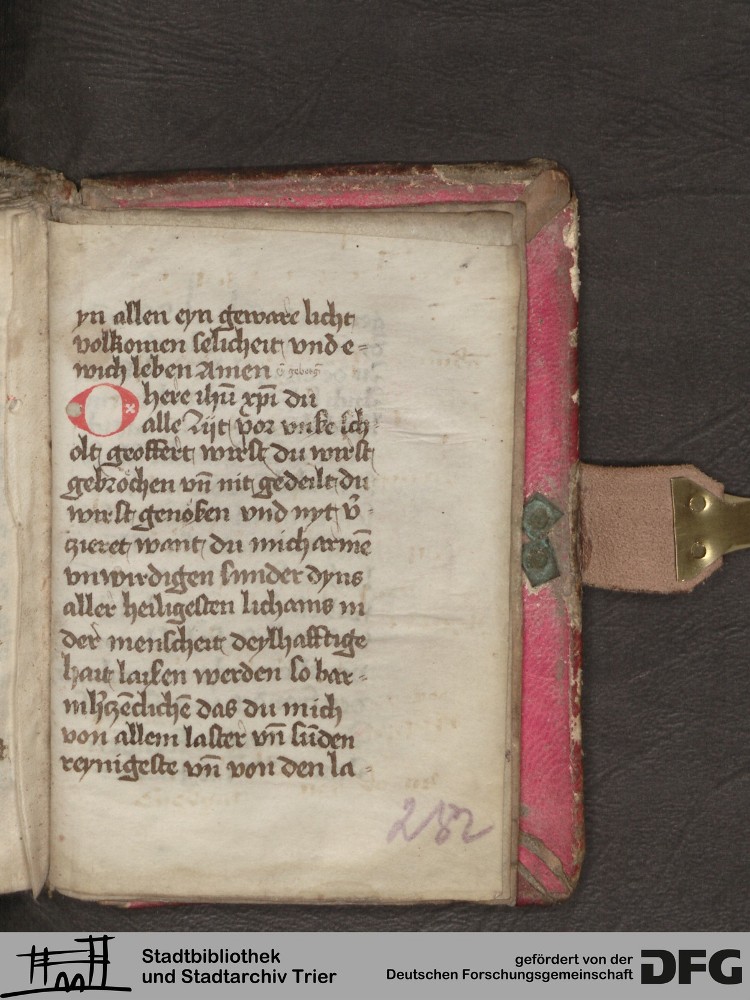 yn allen eyn geware licht
volkomen selicheit vnd e-
wich leben Amen
O here ihū xp̄i du
alle zijt vor vnse sch
olt geoffert wirst du wirst
gebrochen vn̄ nit gedeilt du
wirst genoßen vnd nyt v̄-
zieret want du mich armē
vnwirdigen sunder dyns
aller heiligesten lichams in
der menscheit deylhafftige
hait laißen werden so bar-
mh̄zēclichē das du mich
von allem laster vn̄ sūden
reynigeste vn̄ von den la-
282
Stadtbibliothek
und Stadtarchiv Trier
gefördert von der
Deutschen Forschungsgemeinschaft
DFG